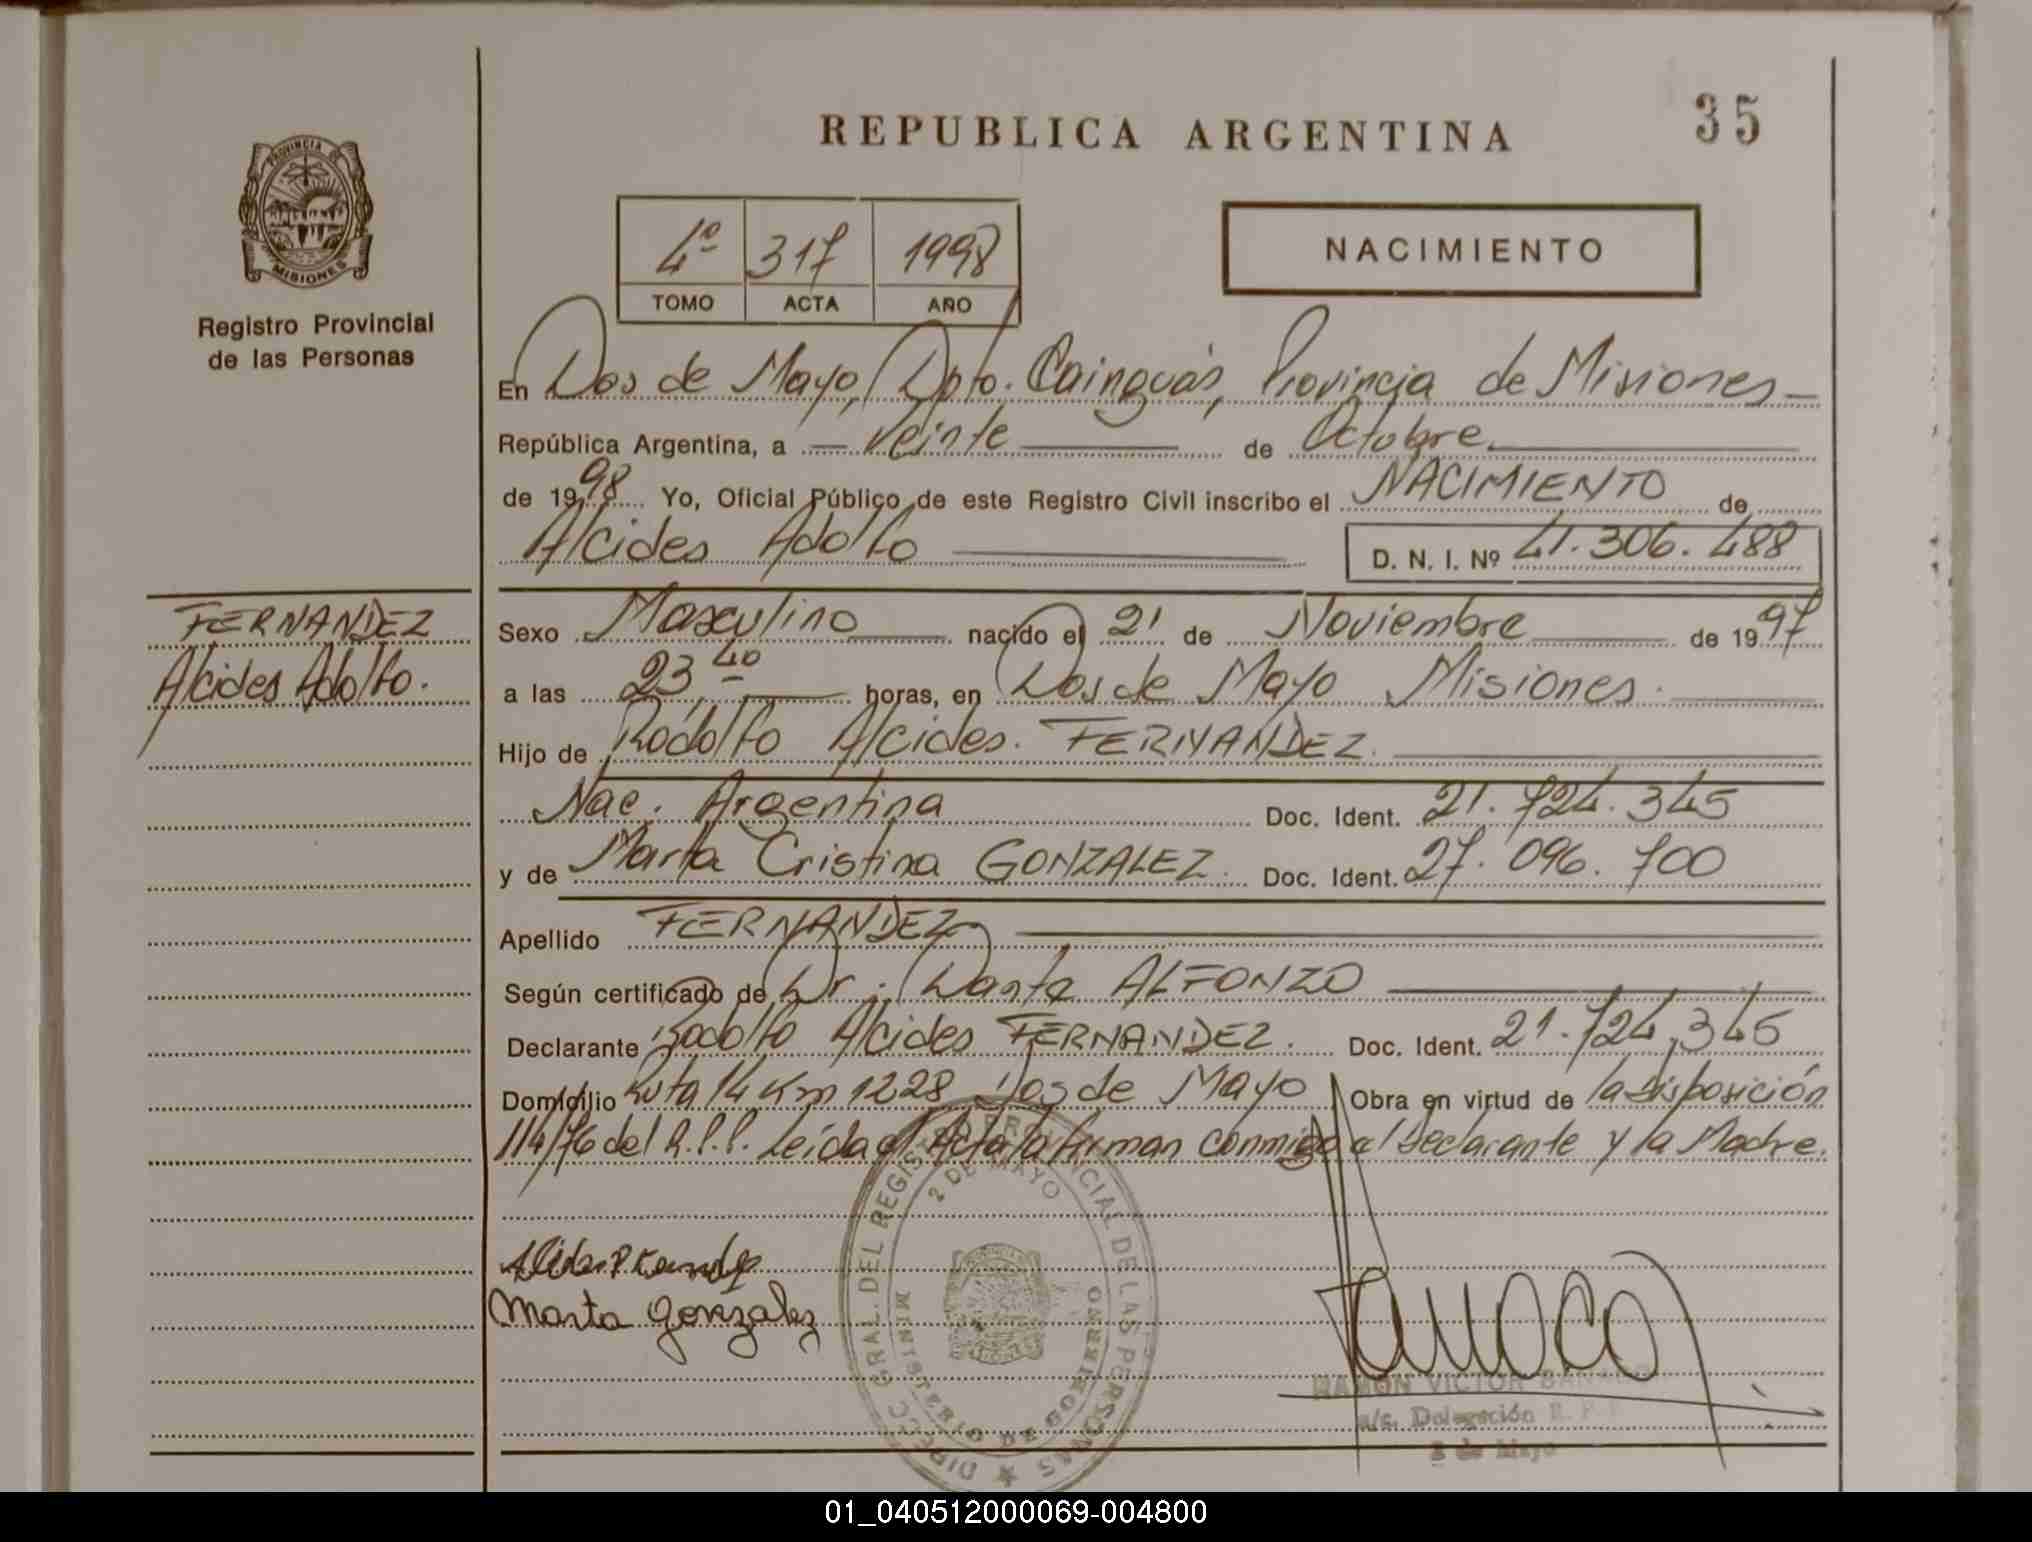 35
REPUBLICA ARGENTINA
PROVINCIA DE
MISIONES
Registro Provincial
de las Personas
4º 317 1998
TOMO ACTA AÑO
NACIMIENTO
En Dos de Mayo, Dpto. Cainguás, Provincia de Misiones
República Argentina, a veinte de Octubre
de 1998 Yo, Oficial Público de este Registro Civil inscribo el NACIMIENTO de
Alcides Adolfo D. N. I. Nº 41.306.488
FERNANDEZ
Alcides Adolfo.
Sexo Masculino nacido el 21 de Noviembre de 1997
a las 23,40 horas, en Dos de Mayo Misiones.
Hijo de Rodolfo Alcides. FERNANDEZ.
Nac. Argentina Doc. Ident. 21.724.345
y de Marta Cristina GONZALEZ. Doc. Ident. 27.096.700
Apellido FERNANDEZ
Según certificado de Dr. Dante ALFONZO
Declarante Rodolfo Alcides FERNANDEZ. Doc. Ident. 21.724.345
Domicilio Ruta 14 Km 1228 Dos de Mayo Obra en virtud de la Disposición
114/76 del R.P.P. Leída el Acta la firman conmigo el Declarante y la Madre.
DIRECC GRAL. DEL REGISTRO PROVINCIAL DE LAS PERSONAS
2 DE MAYO
MINISTERIO DE GOBIERNO
Marta Gonzalez
RAMON VICTOR
a/c. Delegación R. P. P.
2 de Mayo
01_040512000069-004800